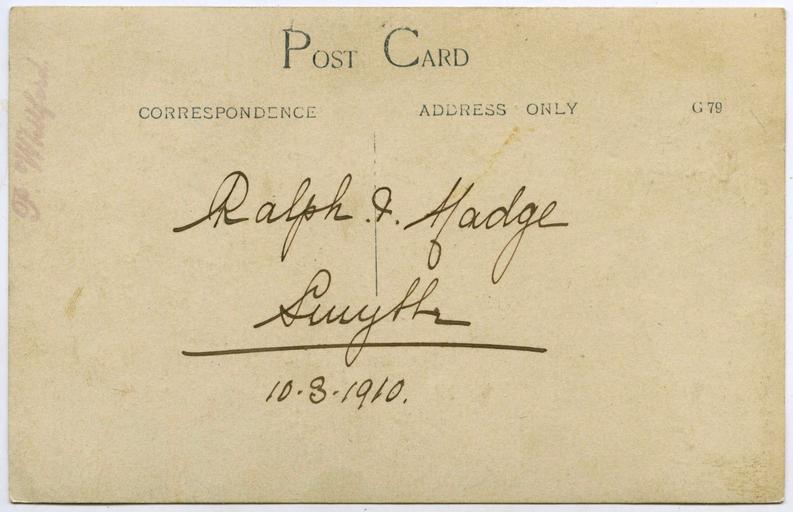 POST CARD
CORRESPONDENCE
ADDRESS ONLY
G 79
Ralph & Madge
Smythe
10.3.1910.
P. Whitford